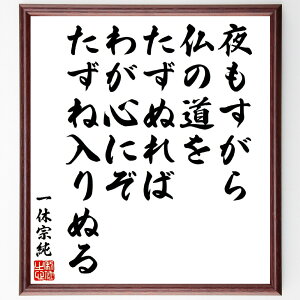 夜もすがら
仏の道を
たずぬれば
わが心にぞ
たずね入りぬる
一休宗純